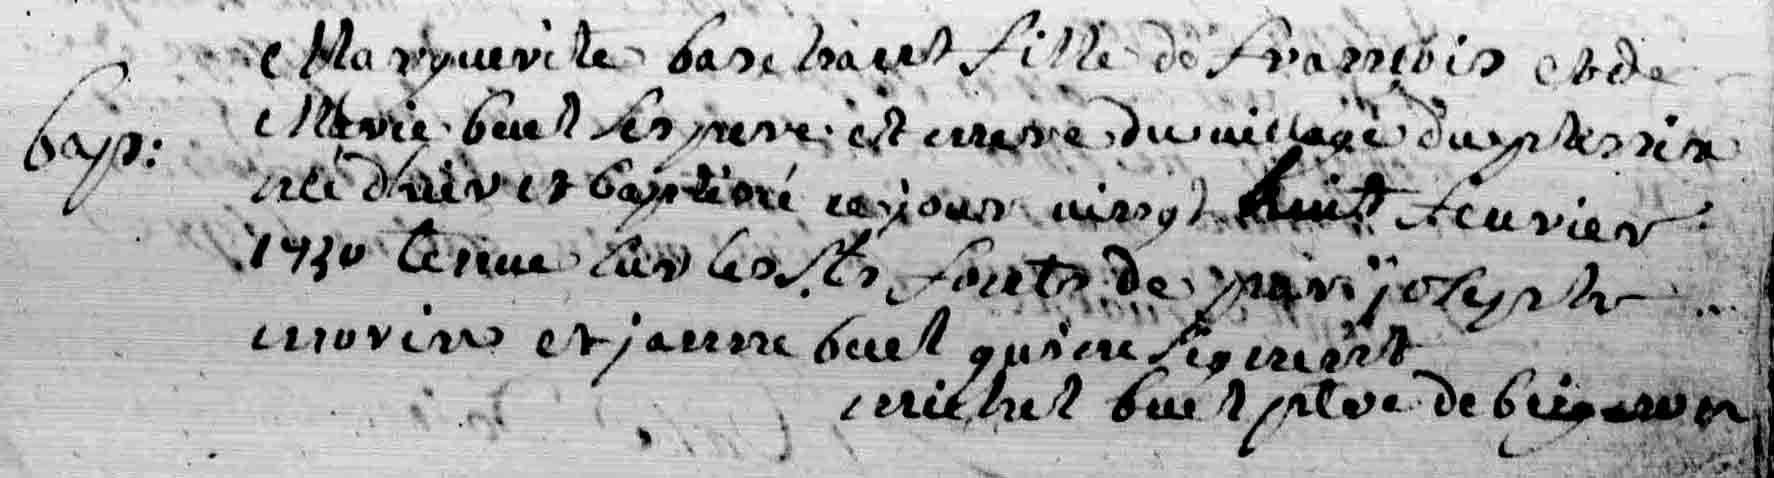 Marguerite fille de François et de
bap:
Marie buet ses pere et mere du village du plessix
né d'hier et baptisé ce jour vingt huit feuvrier
1730 tenue sur les Sts fonts de par joseph
morin et janne buet qui ne signent
michel buet ptre de